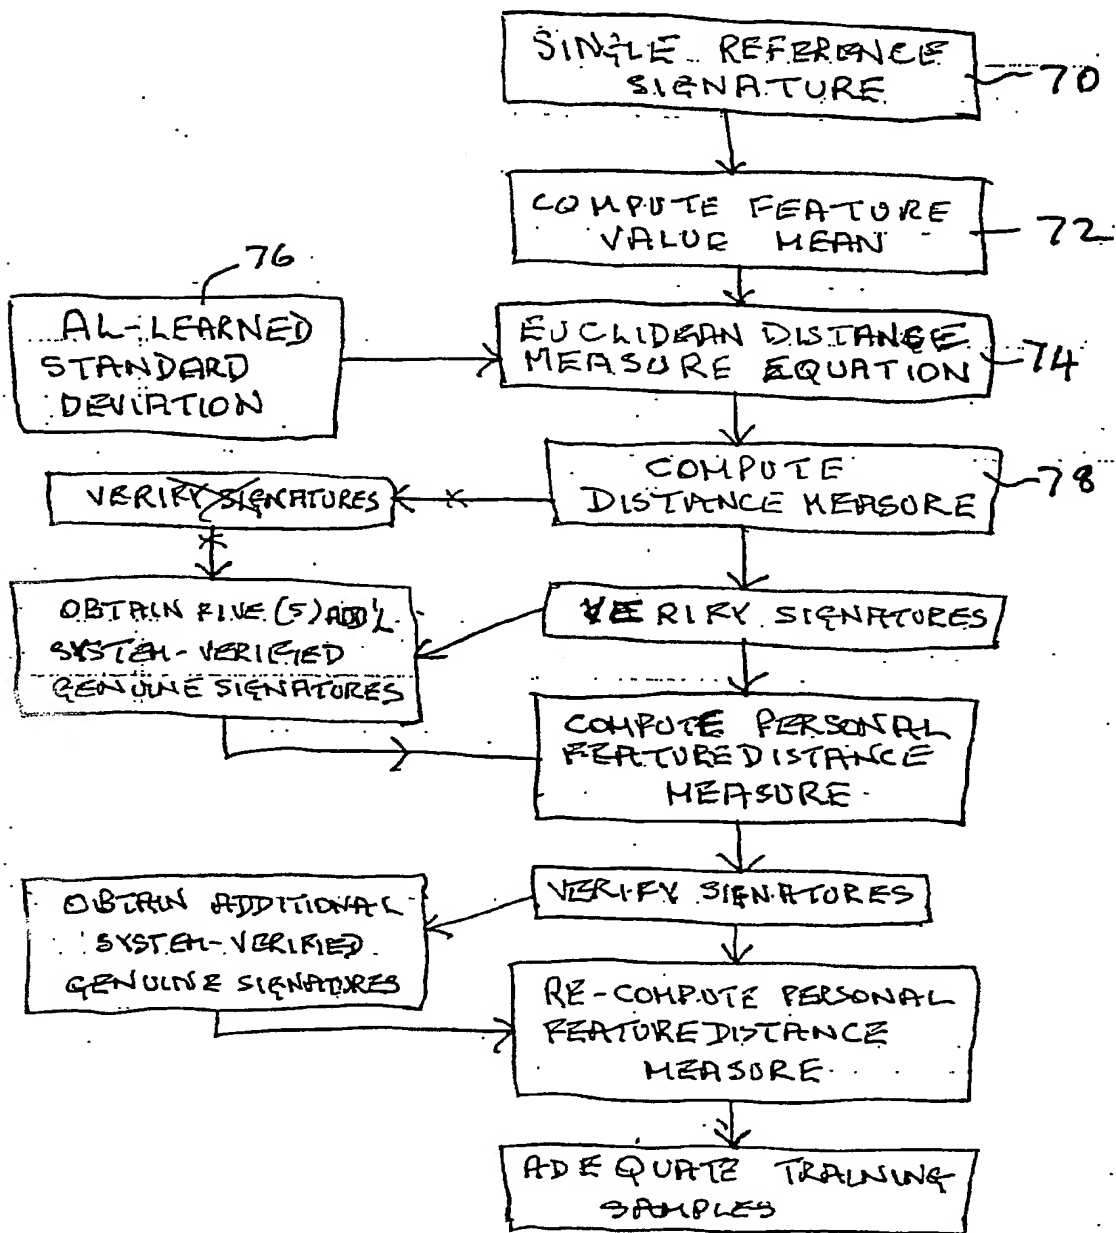 SINGLE REFERENCE
SIGNATURE
70
COMPUTE FEATURE
VALUE MEAN
72
76
AL-LEARNED
STANDARD
DEVIATION
EUCLIDEAN DISTANCE
MEASURE EQUATION
74
COMPUTE
DISTANCE MEASURE
78
VERIFY SIGNATURES
OBTAIN FIVE (5) ADD'L
SYSTEM-VERIFIED
GENUINE SIGNATURES
VERIFY SIGNATURES
COMPUTE PERSONAL
FEATURE DISTANCE
MEASURE
VERIFY SIGNATURES
OBTAIN ADDITIONAL
SYSTEM-VERIFIED
GENUINE SIGNATURES
RE-COMPUTE PERSONAL
FEATURE DISTANCE
MEASURE
ADEQUATE TRAINING
SAMPLES